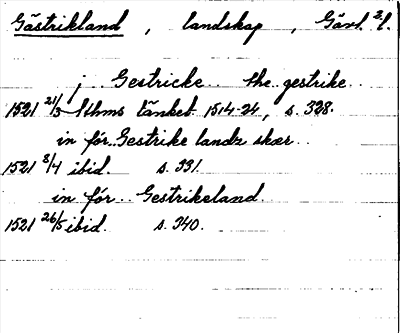 Gästrikland , landskap , Gävl. l.
j Gestricke .. the gestrike ..
1521 21/3 Sthms tänkeb. 1514-24, s. 328.
in för.. Gestrike landz skær ..
1521 8/4 ibid. s. 331.
in för .. Gestrikeland.
1521 26/5 ibid. s. 340.